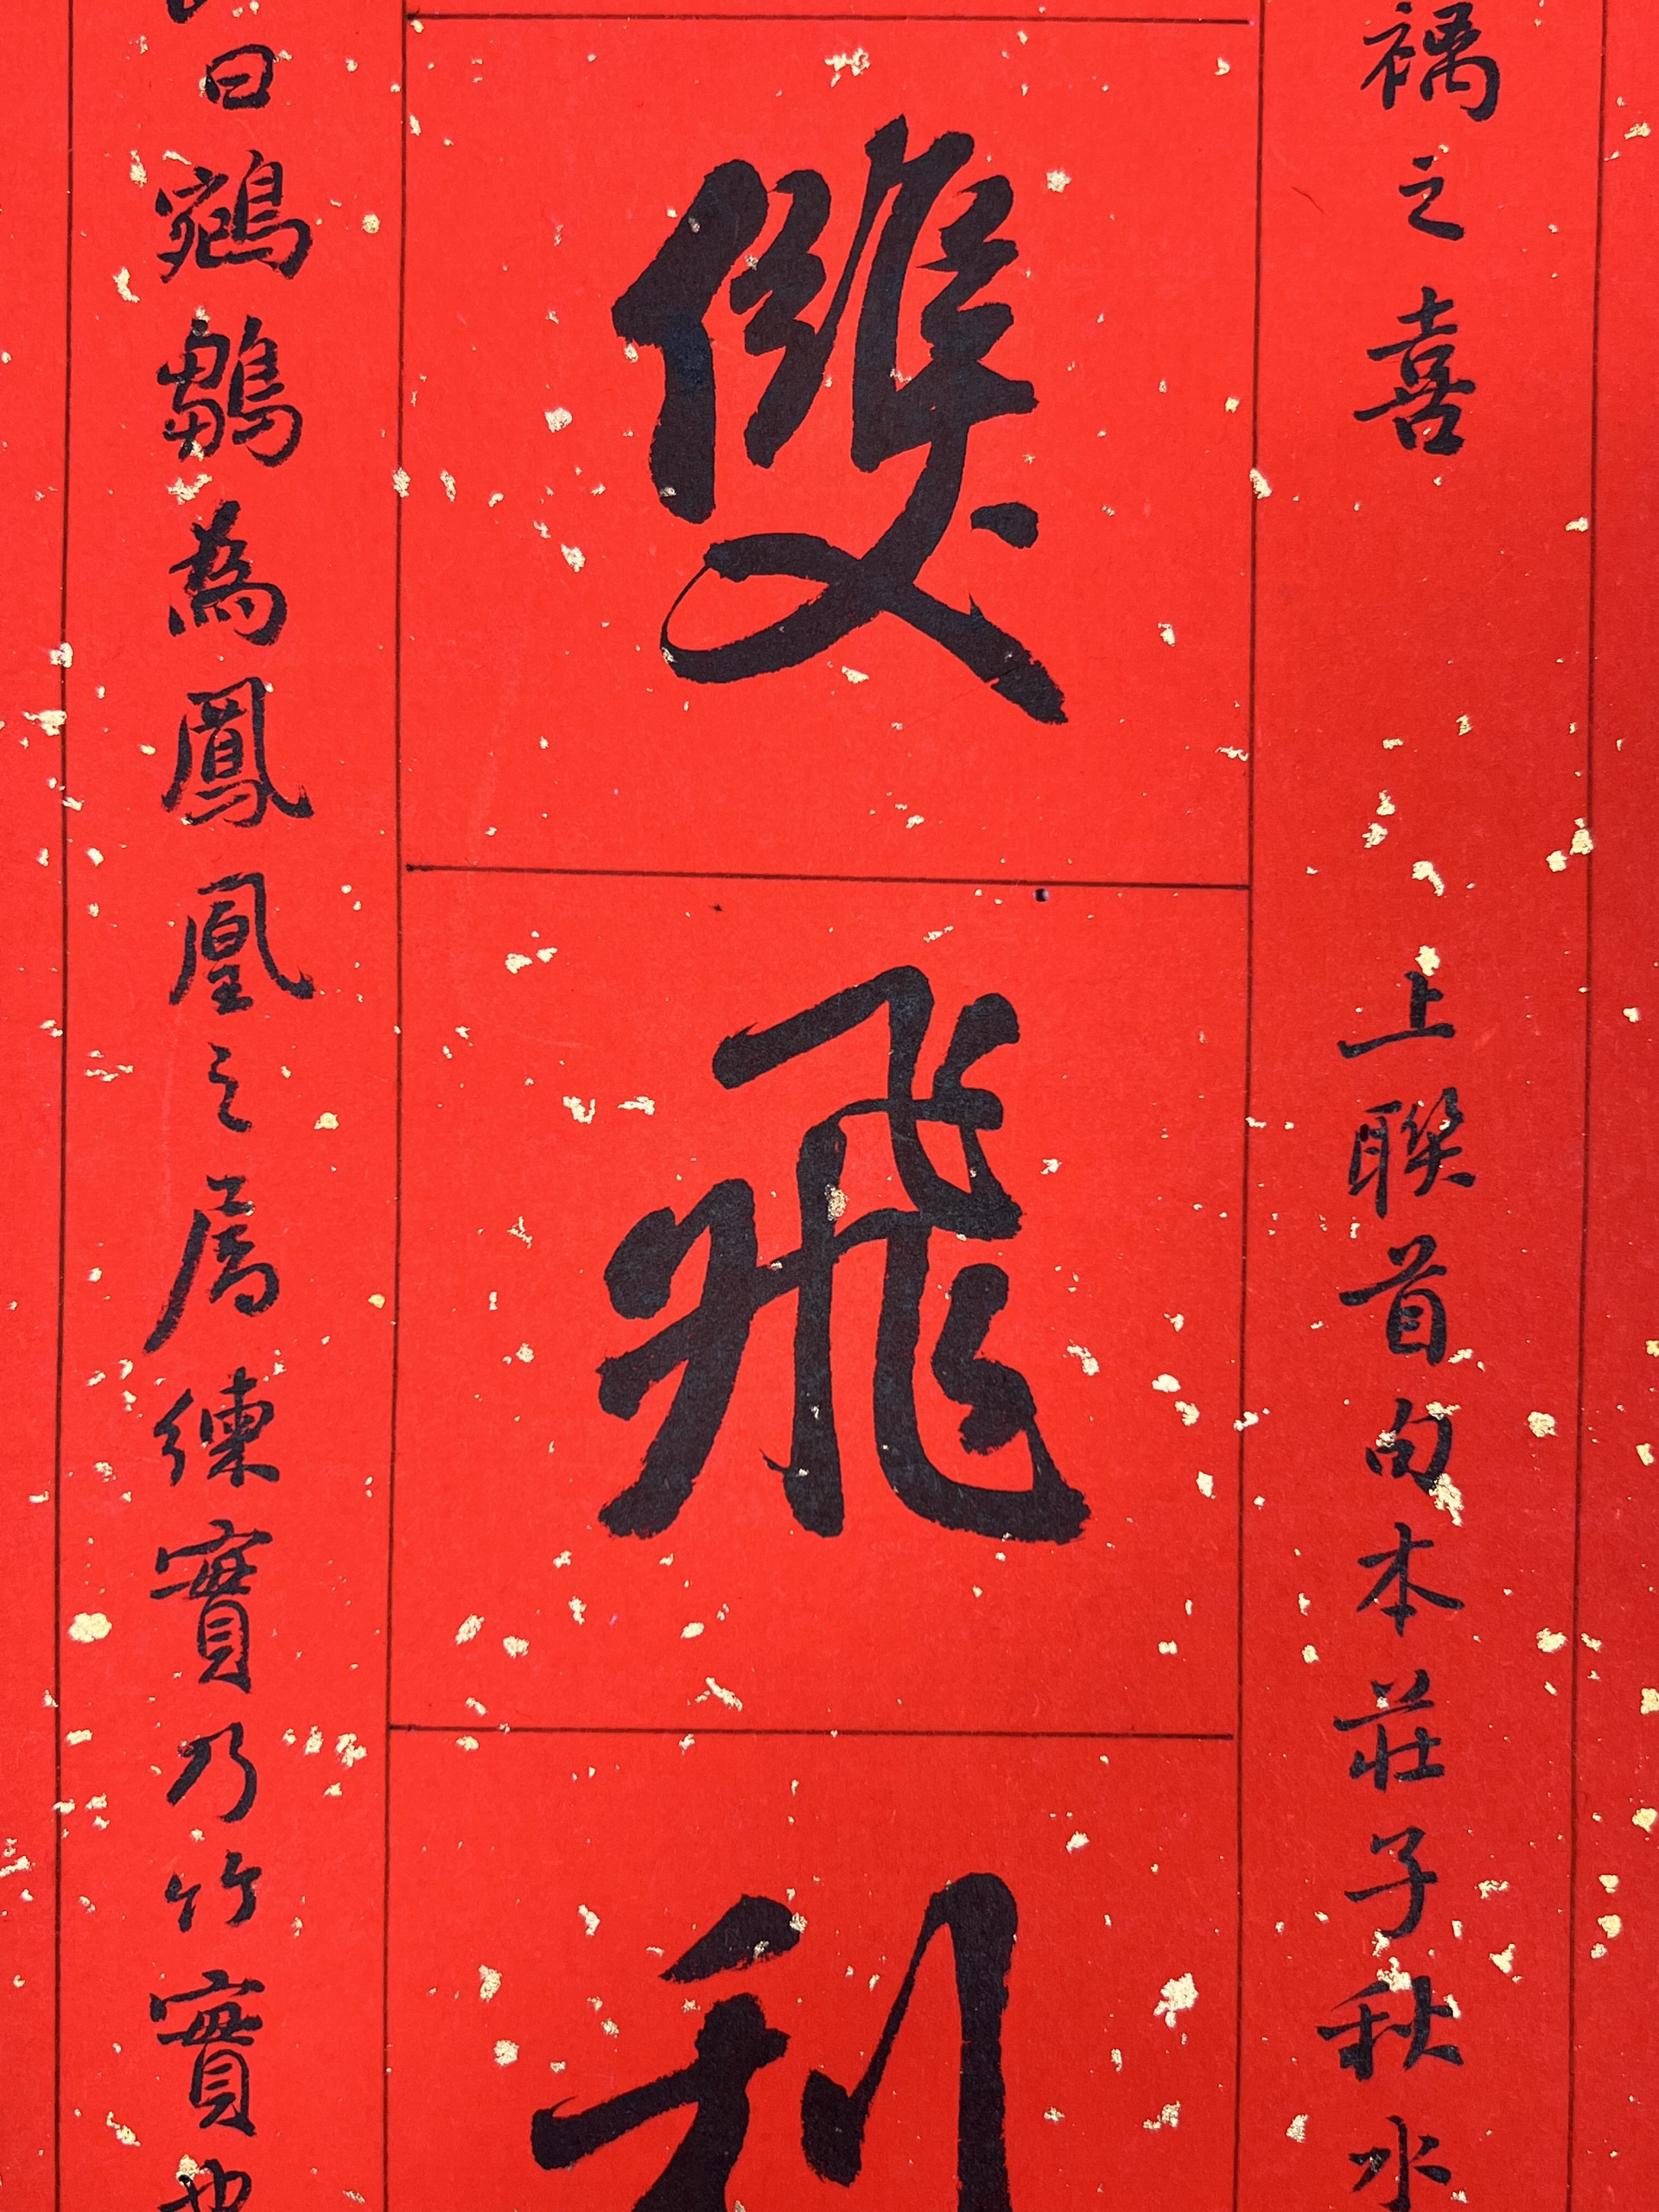 褵之喜　上聯首句本莊子秋水
雙飛利
曰鵷鶵為鳳凰之属練實乃竹實也